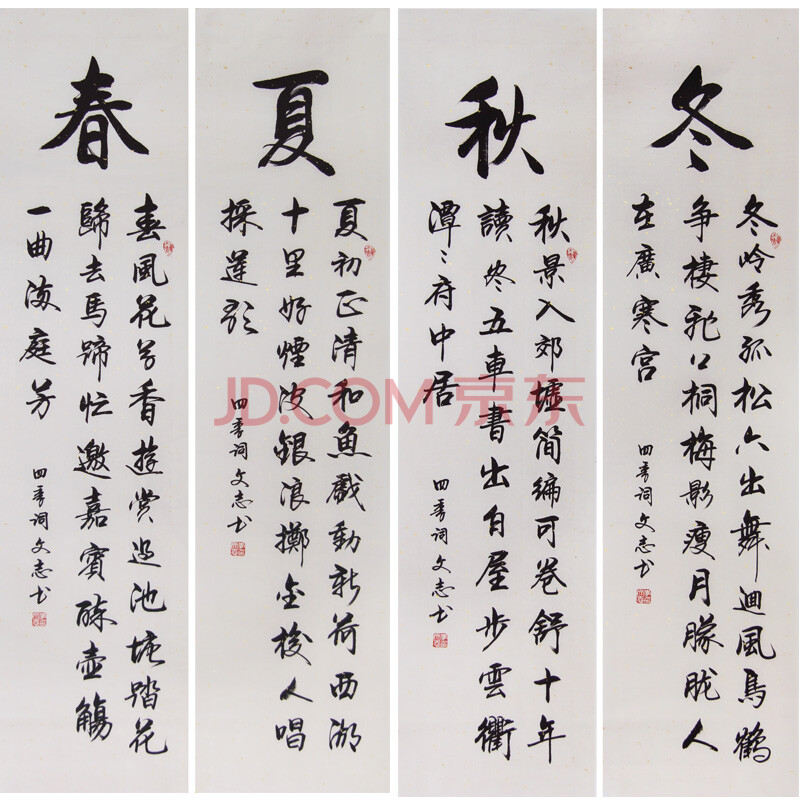 春
春風花草香遊賞過池塘踏花
歸去馬蹄忙邀嘉賓酔壺觴
一曲滿庭芳
四季词文志书
夏
夏初正清和魚戲動新荷西湖
十里好煙波銀浪擲金梭人唱
採蓮歌
四季词文志书
秋
秋景入郊墟簡編可卷舒十年
讀終五車書出白屋步雲衢
潭〻府中居
四季词文志书
冬
冬岭秀孤松六出舞迴風鳥鶴
爭棲飛上桐梅影瘦月朦朧人
在廣寒宮
四季词文志书
JD.COM 京东